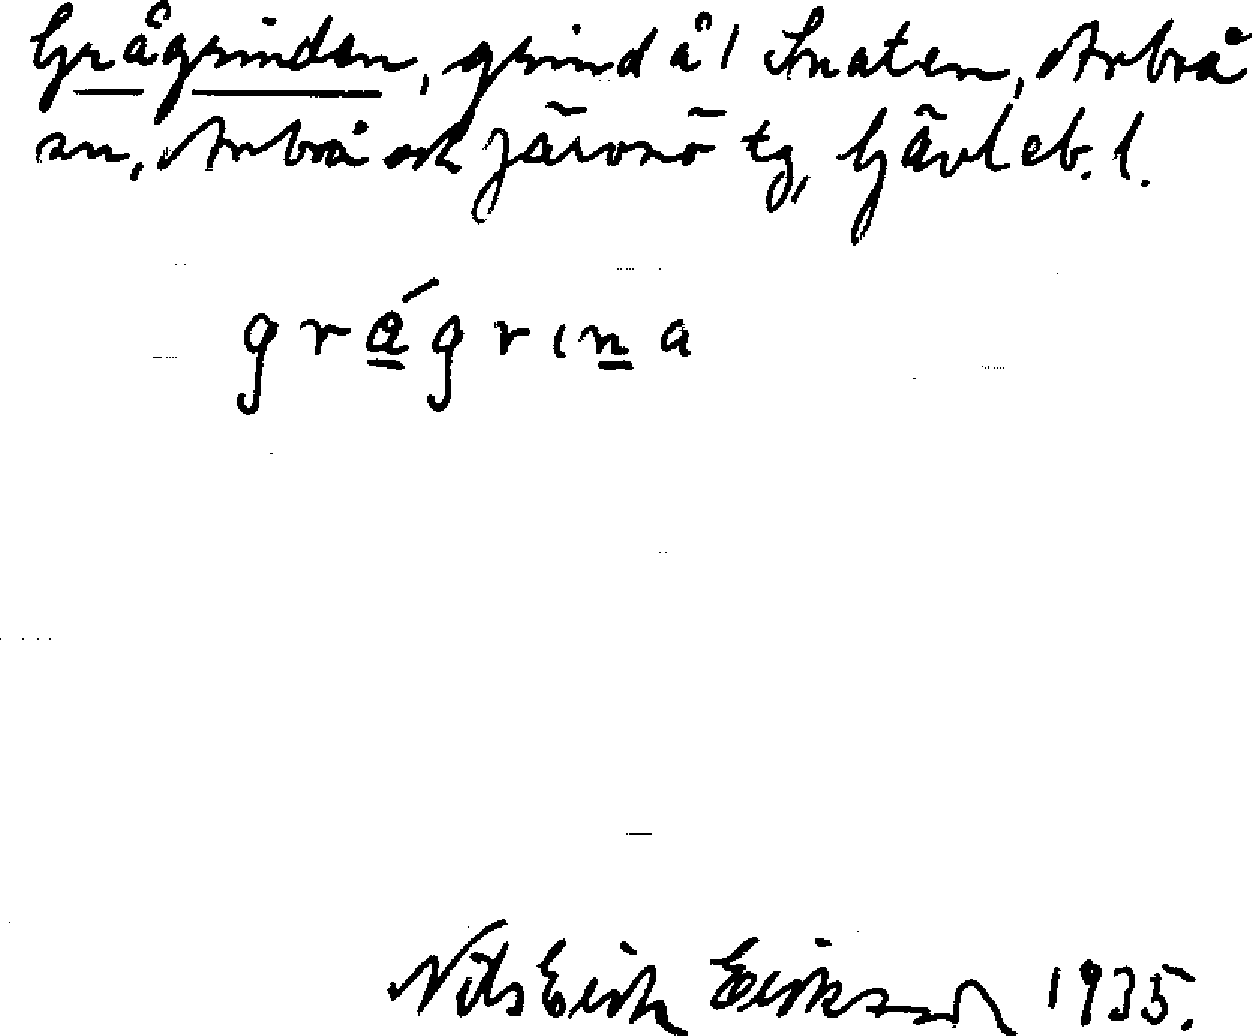 Grågrinden, grind å 1 Snaten, Arbrå
sn, Arbrå och Järvsö tg, Gävleb. l.
grågrina
Nils Erik Erikson 1935.